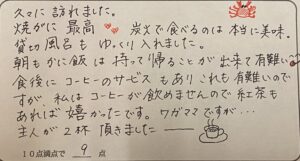 久々に訪れました。
焼がに最高 炭火で食べるのは本当に美味。
貸切風呂もゆっくり入れました。
朝もかに飯は持って帰ることが出来て有難い
食後にコーヒーのサービスもありこれも有難いので
すが、私はコーヒーが飲めませんので紅茶も
あれば嬉かったです。ワガママですが
主人が2杯頂きました
10点満点で 9 点